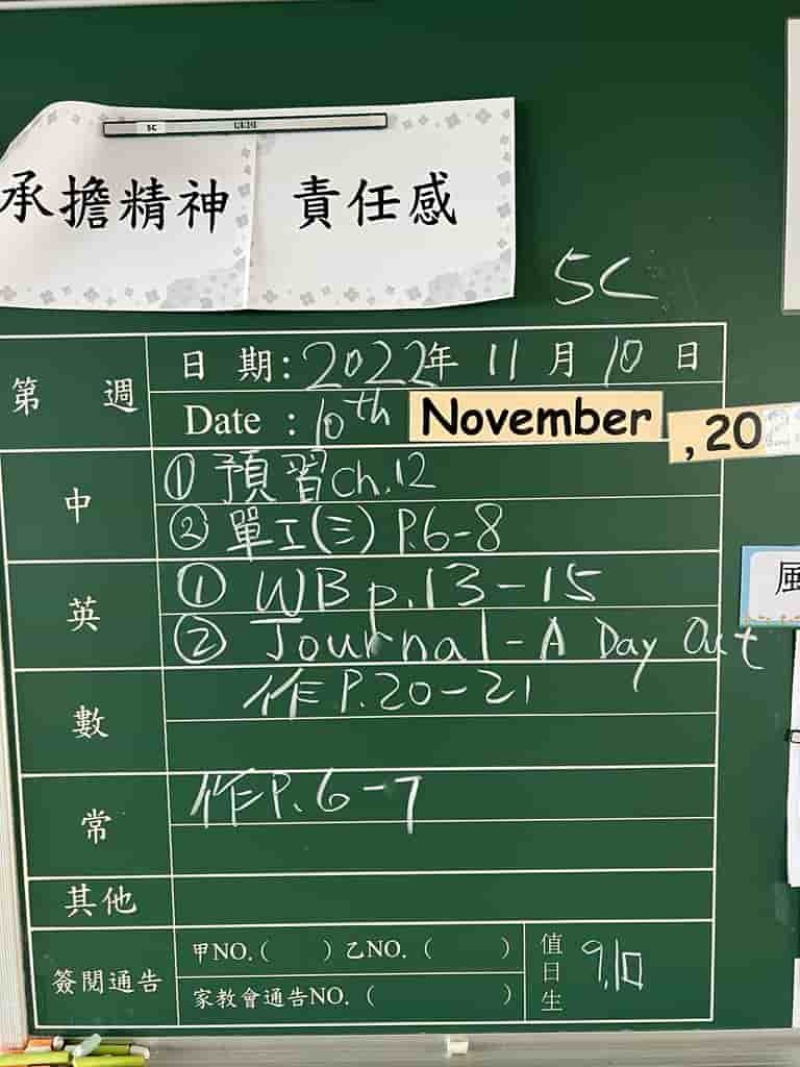 承擔精神 責任感
5C
第 週
日 期:2022年 11 月 10 日
Date : 10th November , 20
中
① 預習Ch.12
② 單工(三) P.6-8
英
① WB p.13-15
② Journal-A Day Out
數
作P.20-21
常
作P.6-7
其他
簽閱通告
甲NO.( ) 乙NO.( )
家教會通告NO.( )
值日生
9,10
風